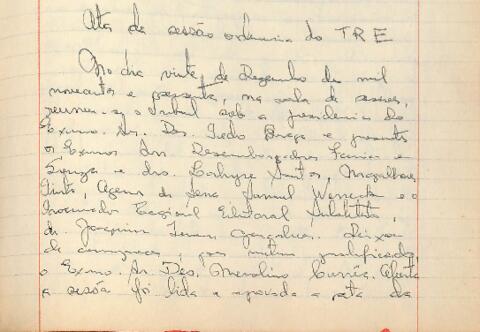 Ata da sessão ordinaria do TRE
No dia vinte de Dezembro de mil
novecentos e sessenta, na sala de sessões,
reuniu-se o Tribunal sob a presidencia do
Exmo. Sr. Des. Braga e presentes
os Exmos Srs Desembargadores Faria e
Souza e drs. Santos, Magalhães
Pinto, Agenor de Sena, e o
Procurador Regional Eleitoral Substituto,
dr. Joaquim Gonçalves. Deixou
de comparecer, por motivo justificado,
o Exmo. Sr. Des. Merolino Corrêa. Aberta
a sessão foi lida e aprovada a ata da